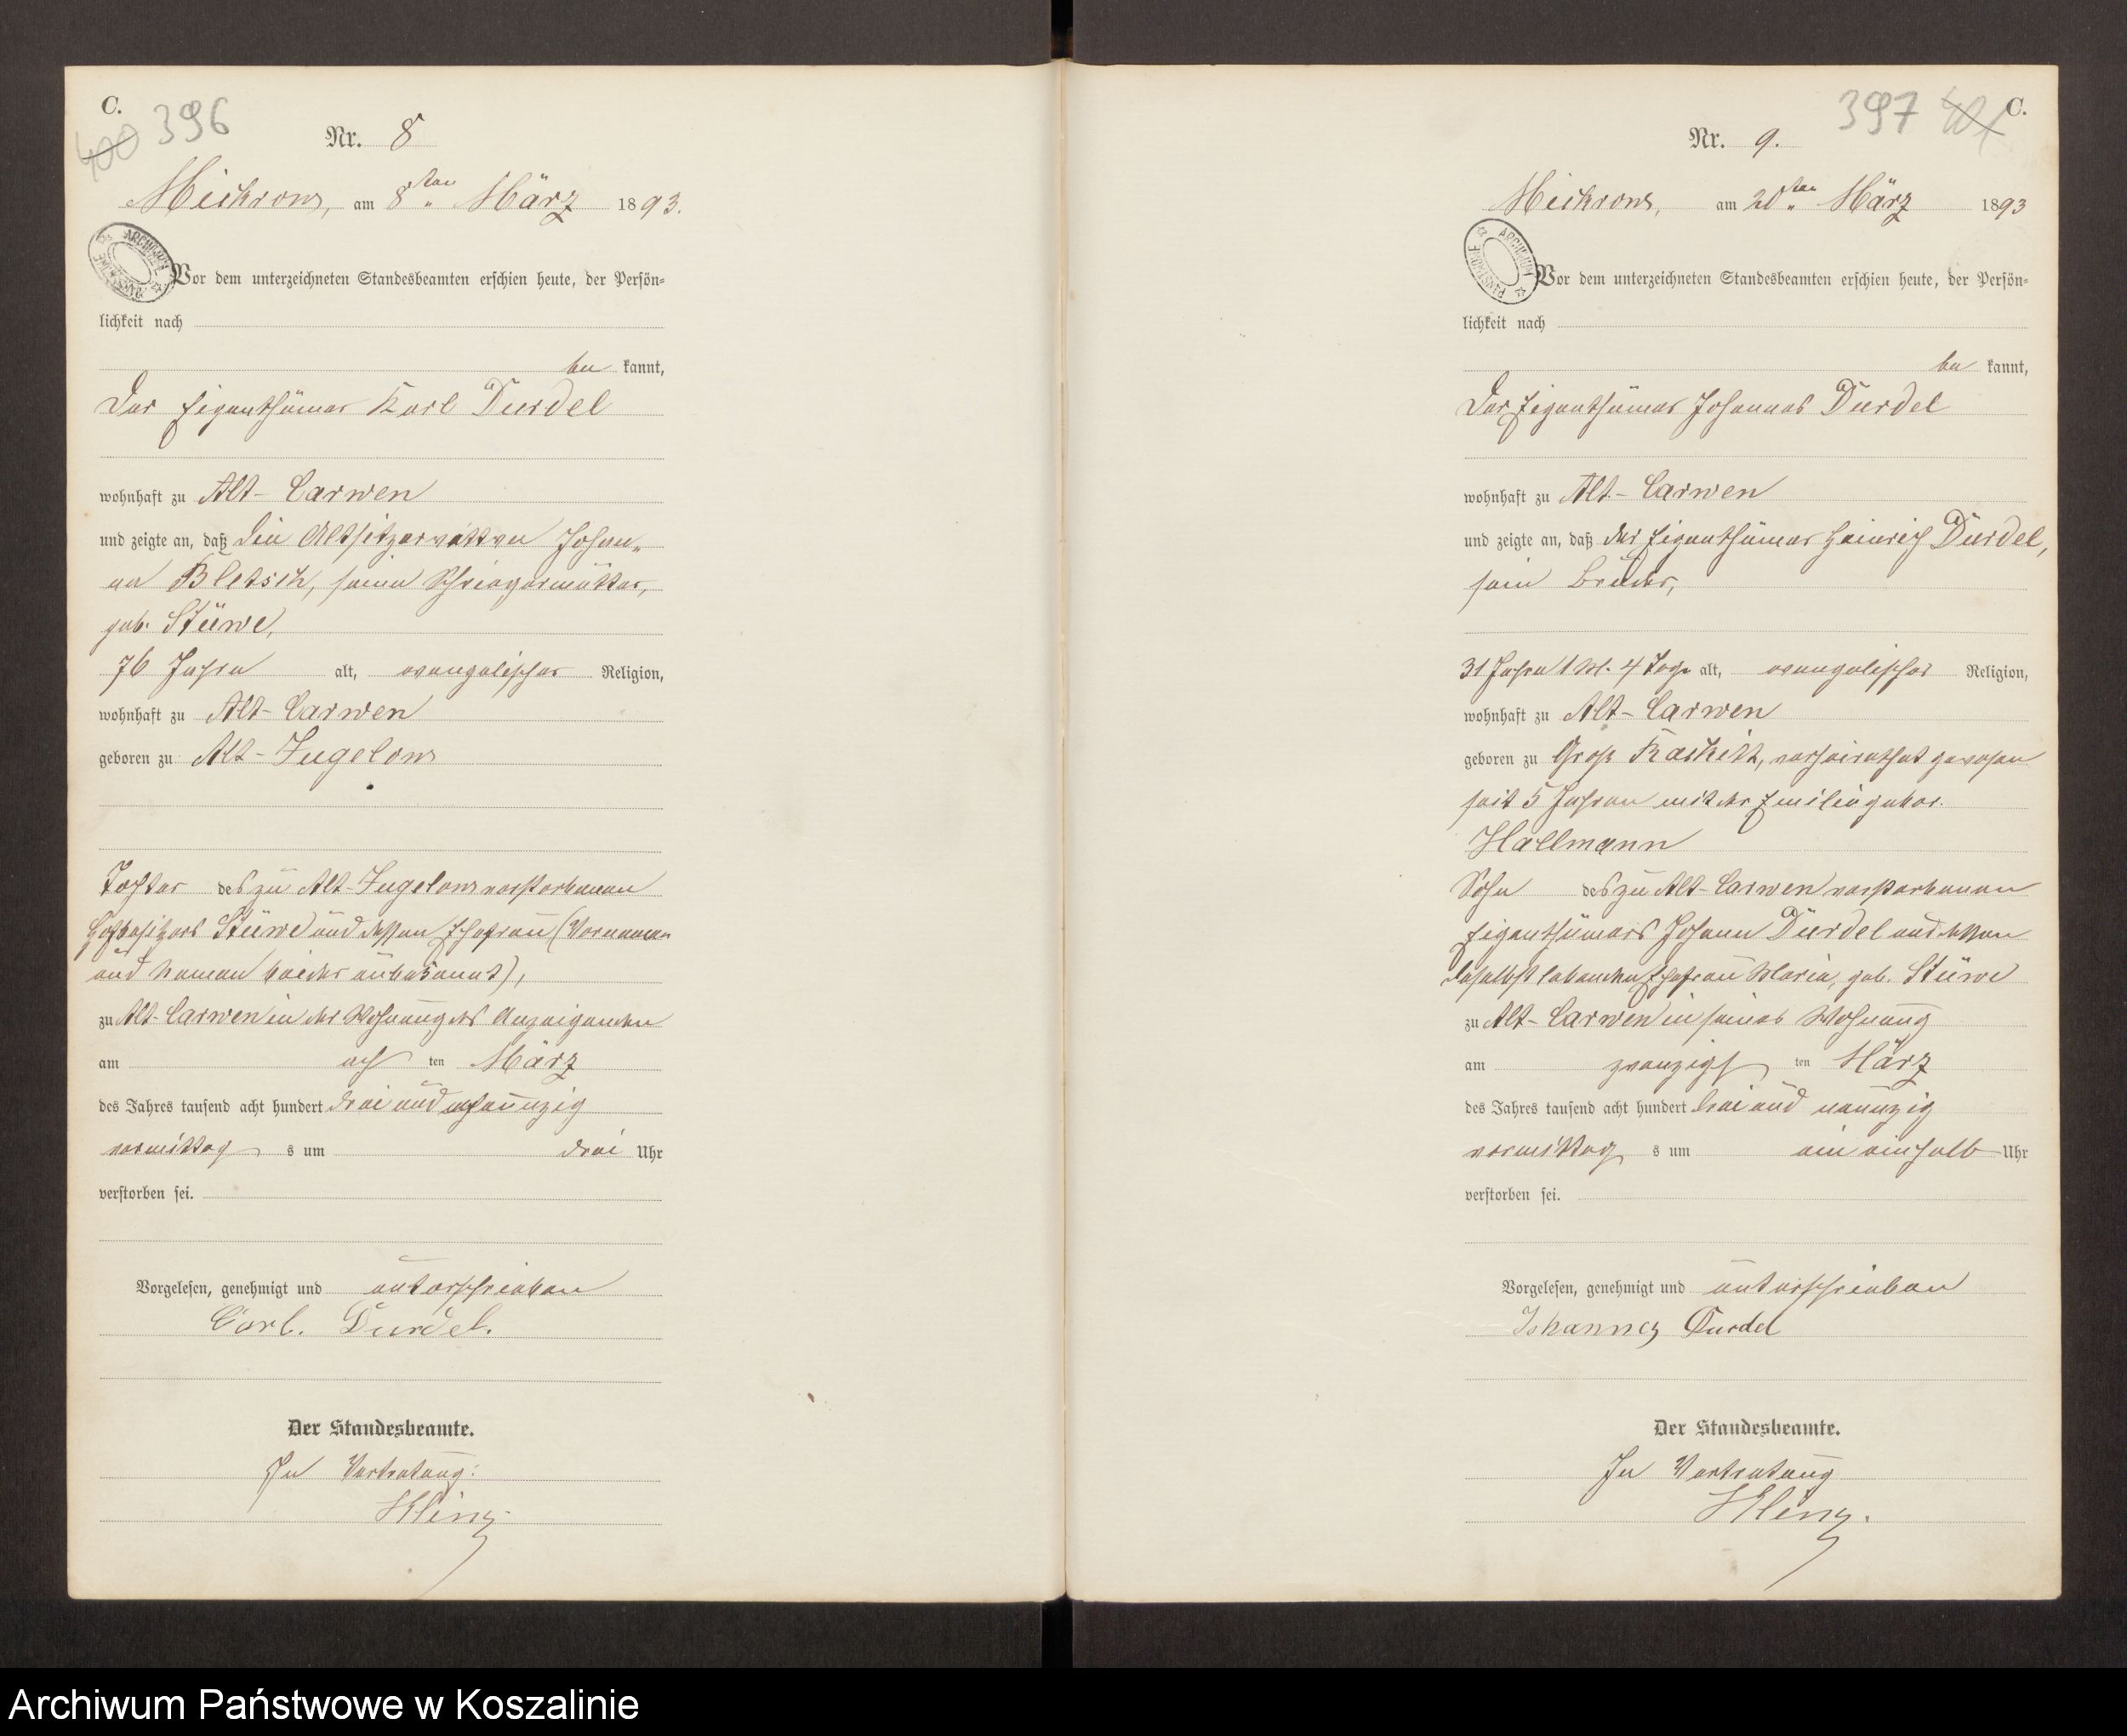 C.
400 396
Nr. 8
Mickrow, am 8ten März 1893.
ARCHIWUM PAŃSTWOWE
Vor dem unterzeichneten Standesbeamten erschien heute, der Persön-
lichkeit nach
be kannt,
Der Eigenthümer Karl Durdel
wohnhaft zu Alt-Carwen
und zeigte an, daß die Altsitzerwittwe Johan-
na Bletsch, seine Schwiegermutter,
geb. Stüwe,
76 Jahre alt, evangelischer Religion,
wohnhaft zu Alt-Carwen
geboren zu Alt-Jugelow
Tochter des zu Alt-Jugelow verstorbenen
Hofbesitzers Stüwe und dessen Ehefrau (Vornamen
und Namen beider unbekannt),
zu Alt-Carwen in der Wohnung des Anzeigenden
am ach ten März
des Jahres tausend acht hundert drei und neunzig
vormittag s um drei Uhr
verstorben sei.
Vorgelesen, genehmigt und unterschrieben
Carl. Durdel.
Der Standesbeamte.
In Vertretung:
Klinz.
397 401 C.
Nr. 9.
Mickrow, am 20ten März 1893
ARCHIWUM PAŃSTWOWE
Vor dem unterzeichneten Standesbeamten erschien heute, der Persön-
lichkeit nach
be kannt,
Der Eigenthümer Johannes Durdel
wohnhaft zu Alt-Carwen
und zeigte an, daß der Eigenthümer Heinrich Durdel,
sein Bruder,
31 Jahre 1 M. 4 Tage alt, evangelischer Religion,
wohnhaft zu Alt-Carwen
geboren zu Groß Rackitt, verheirathet gewesen
seit 5 Jahren mit der Emilie gebor.
Hallmann
Sohn des zu Alt-Carwen verstorbenen
Eigenthümers Johann Durdel und dessen
daselbst lebenden Ehefrau Maria, geb. Stüwe
zu Alt-Carwen in seiner Wohnung
am zwanzigs ten März
des Jahres tausend acht hundert drei und neunzig
vormittag s um ein einhalb Uhr
verstorben sei.
Vorgelesen, genehmigt und unterschrieben
Johannes Durdel
Der Standesbeamte.
In Vertretung
Klinz.
Archiwum Państwowe w Koszalinie